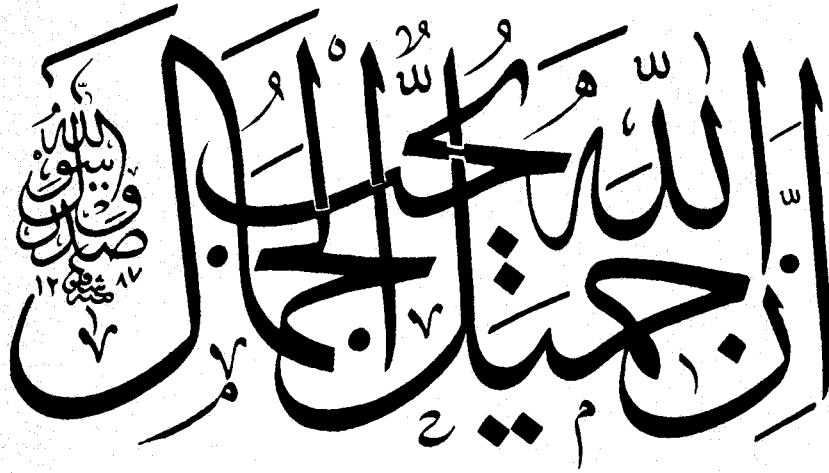 اِنَّ اللّٰهَ جميل يُحِبُّ الْجمال
صدق رسول اللّٰه
١٢٨٧